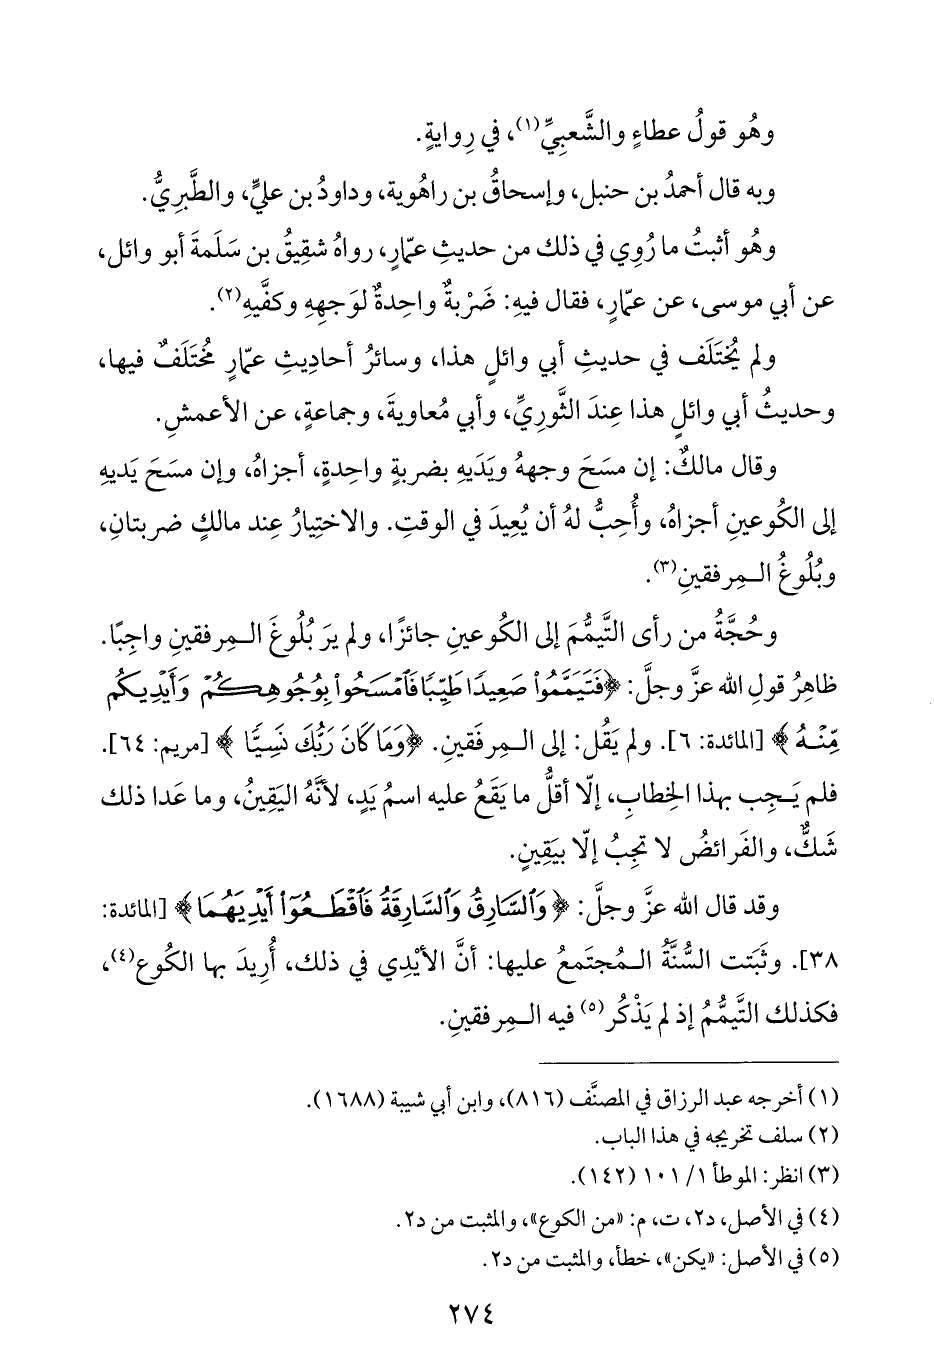 وهُو قولُ عطاءٍ والشَّعبِيِّ(١)، في رِوايةٍ.
وبه قال أحمدُ بن حنبل، وإسحاقُ بن راهُوية، وداودُ بن عليٍّ، والطَّبرِيُّ.
وهُو أثبتُ ما رُوِي في ذلك من حديثِ عمّارٍ، رواهُ شقِيقُ بن سَلَمةَ أبو وائل،
عن أبي موسى، عن عمّارٍ، فقال فيهِ: ضَرْبةٌ واحِدةٌ لوَجهِهِ وكفَّيهِ(٢).
ولم يُختَلَف في حديثِ أبي وائلٍ هذا، وسائرُ أحادِيثِ عمّارٍ مُختَلَفٌ فيها،
وحديثُ أبي وائلٍ هذا عِندَ الثَّورِيِّ، وأبي مُعاويةَ، وجماعةٍ، عن الأعمشِ.
وقال مالكٌ: إن مسَحَ وجههُ ويَدَيهِ بضربةٍ واحِدةٍ، أجزاهُ، وإن مسَحَ يَديهِ
إلى الكُوعينِ أجزاهُ، وأُحِبُّ لهُ أن يُعِيدَ في الوقتِ. والاختِيارُ عِند مالكٍ ضربتانِ،
وبُلُوغُ الـمِرفقينِ(٣).
وحُجَّةُ من رأى التَّيمُّمَ إلى الكُوعينِ جائزًا، ولم يرَ بُلُوغَ الـمِرفقينِ واجِبًا.
ظاهِرُ قولِ الله عزَّ وجلَّ: ﴿فَتَيَمَّمُوا۟ صَعِيدًا طَيِّبًا فَٱمْسَحُوا۟ بِوُجُوهِكُمْ وَأَيْدِيكُم
مِّنْهُ﴾ [المائدة: ٦]. ولم يَقُل: إلى الـمِرفَقينِ. ﴿وَمَا كَانَ رَبُّكَ نَسِيًّا﴾ [مريم: ٦٤].
فلم يَـجِب بهذا الخِطابِ، إلّا أقلُّ ما يَقَعُ عليه اسمُ يَدٍ، لأنَّهُ اليَقِينُ، وما عَدا ذلك
شَكٌّ، والفَرائضُ لا تجِبُ إلّا بيَقِينٍ.
وقد قال الله عزَّ وجلَّ: ﴿وَٱلسَّارِقُ وَٱلسَّارِقَةُ فَٱقْطَعُوٓا۟ أَيْدِيَهُمَا﴾ [المائدة:
٣٨]. وثَبَتت السُّنَّةُ الـمُجتَمعُ عليها: أنَّ الأيْدِي في ذلك، أُرِيدَ بها الكوع(٤)،
فكذلك التَّيمُّمُ إذ لم يَذْكُر(٥) فيه الـمِرفقينِ.
(١) أخرجه عبد الرزاق في المصنَّف (٨١٦)، وابن أبي شيبة (١٦٨٨).
(٢) سلف تخريجه في هذا الباب.
(٣) انظر: الموطأ ١/ ١٠١ (١٤٢).
(٤) في الأصل، د٢، ت، م: «من الكوع»، والمثبت من د٢.
(٥) في الأصل: «يكن»، خطأ، والمثبت من د٢.
٢٧٤